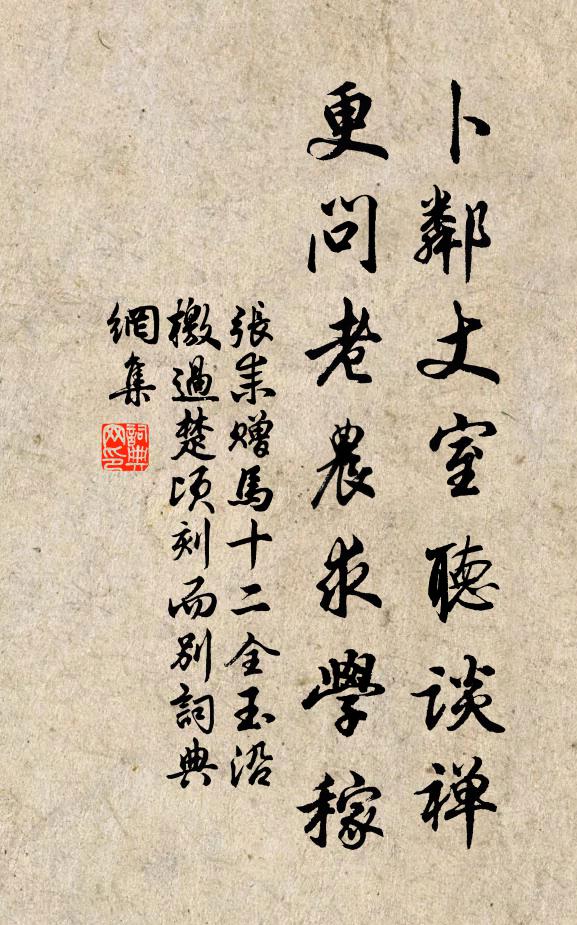 卜鄰丈室聽談禪
更問老農求學稼
張耒贈馬十二全玉沿
檄過楚頃刻而別詞典
網集
詞典
网印